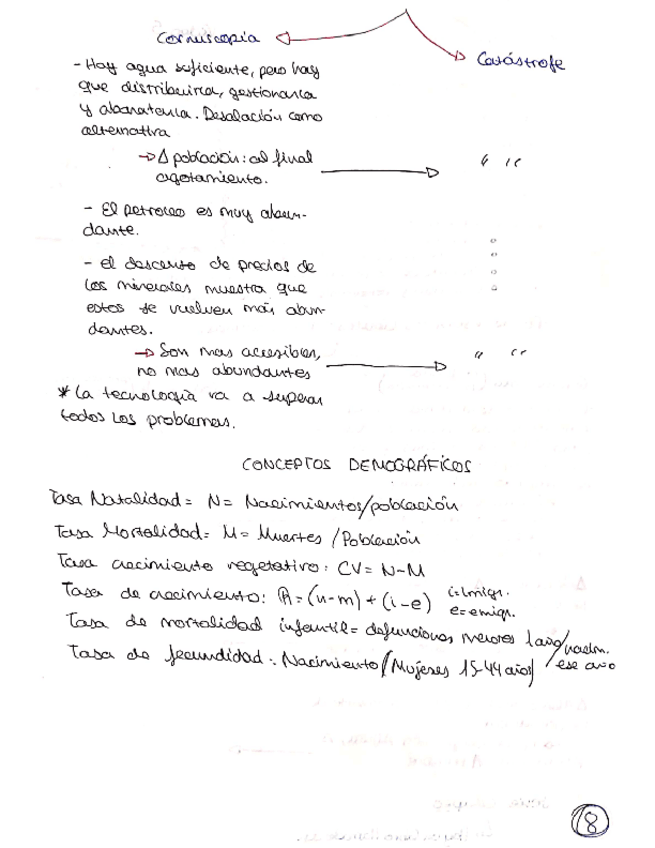 Cornuscopia
Catástrofe
- Hay agua suficiente, pero hay
que distribuirla, gestionarla
y abaratarla. Desalación como
alternativa
→ Δ población: al final
agotamiento.
" "
- El petroleo es muy abun-
dante.
- el descenso de precios de
los minerales muestra que
estos se vuelven más abun-
dantes.
→ Son mas accesibles,
no mas abundantes
" "
* La tecnología va a superar
todos los problemas.
CONCEPTOS DEMOGRÁFICOS
Tasa Natalidad = N = Nacimientos/población
Tasa Mortalidad = M = Muertes / Población
Tasa crecimiento vegetativo: CV = N-M
Tasa de crecimiento: R = (n-m) + (i-e) i=Inmigr.
e=emigr.
Tasa de mortalidad infantil = defunciones menores 1 año/nacim.
ese año
Tasa de fecundidad: Nacimiento/Mujeres 15-44 años
8